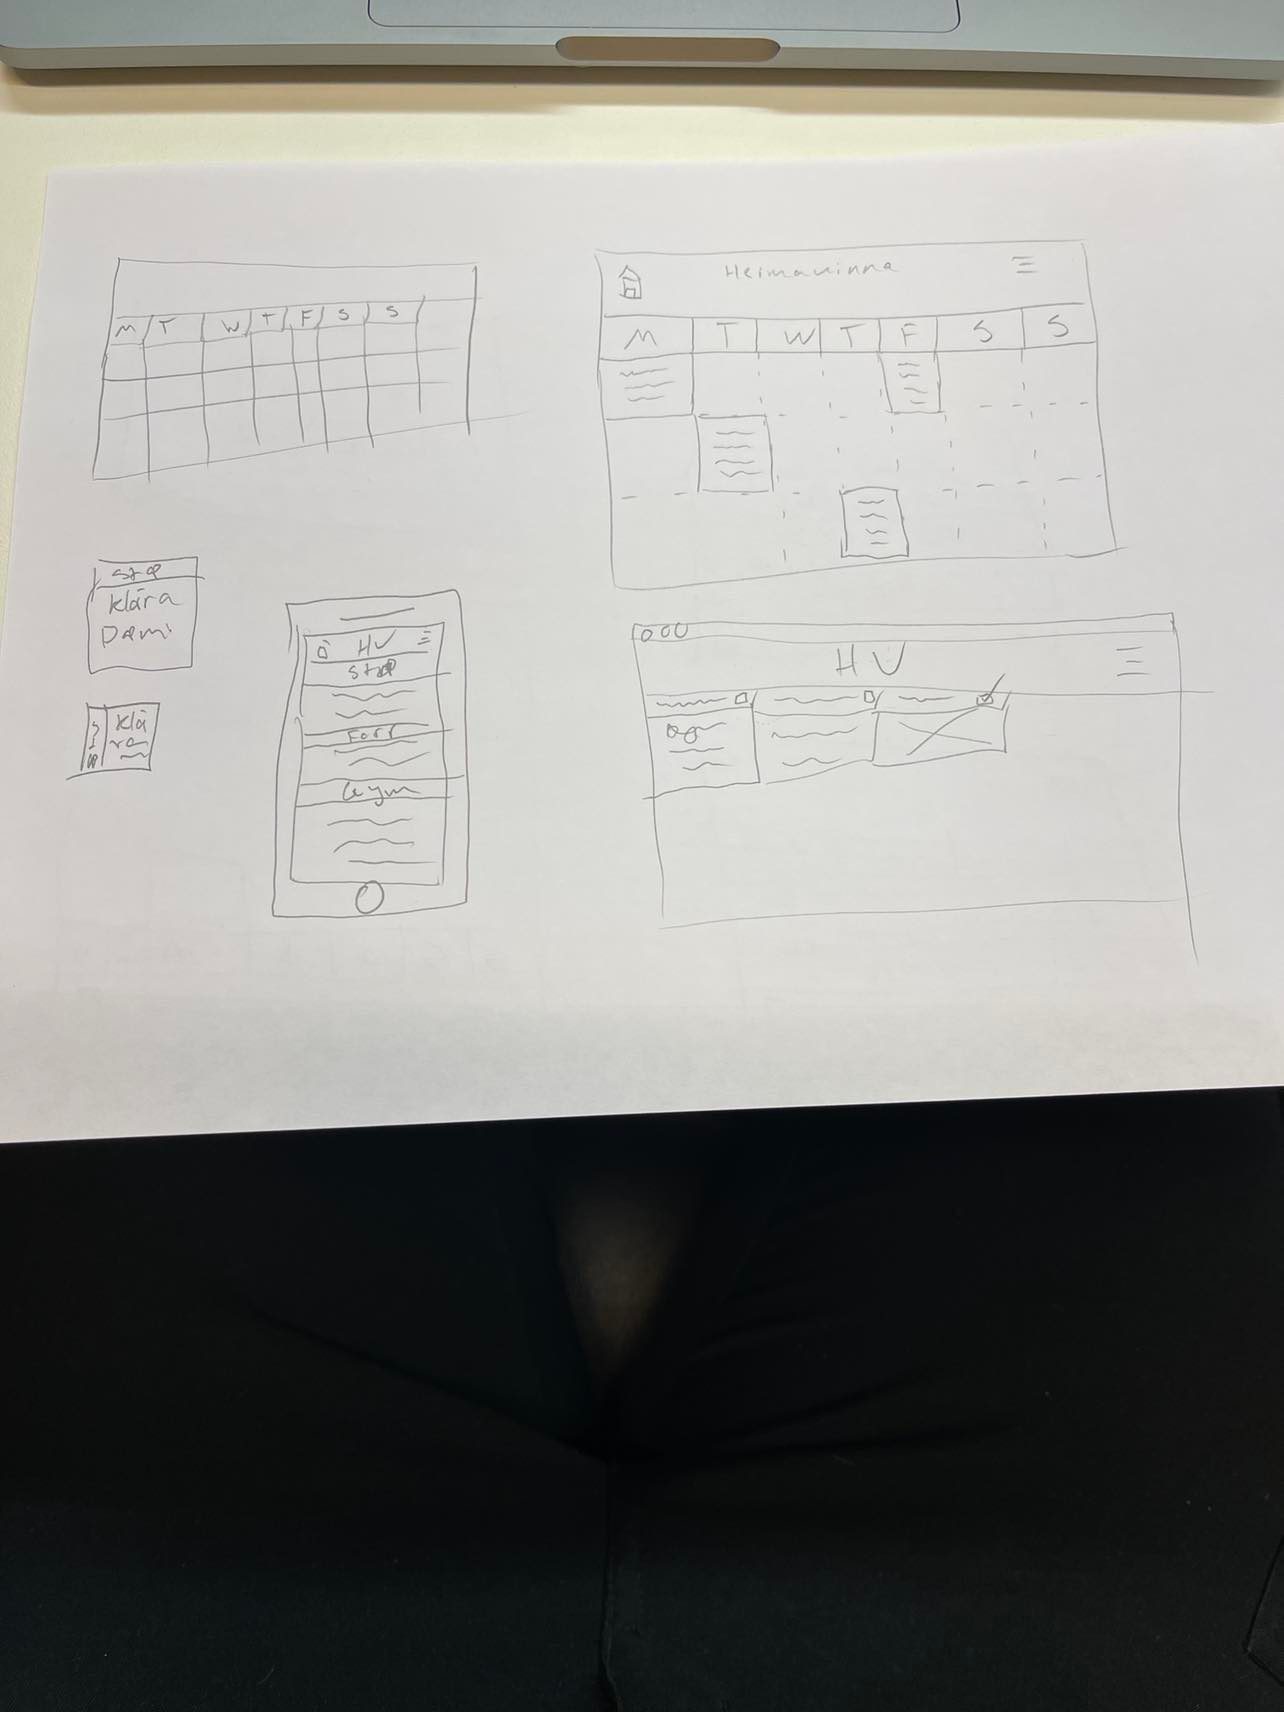 M T W T F S S
Heimavinna
M T W T F S S
Klára
Dæmi
Klá
ra
HV
Forr
Gym
HV